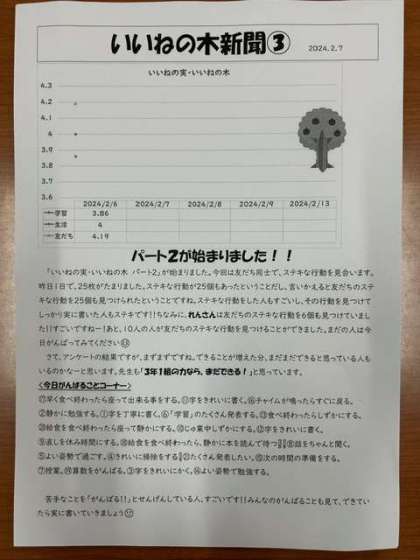 いいねの木新聞③
2024.2.7
いいねの実・いいねの木
4.3
4.2
4.1
4
3.9
3.8
3.7
3.6
2024/2/6 2024/2/7 2024/2/8 2024/2/9 2024/2/13
学習 3.86
生活 4
友だち 4.19
パート2が始まりました！！
「いいねの実・いいねの木 パート2」が始まりました。今回は友だち同士で、ステキな行動を見合います。
昨日1日で、25枚がたまりました。ステキな行動が25個もあったということだし、言いかえると友だちのステ
キな行動を25個も見つけられたということですね。ステキな行動をした人もすごいし、その行動を見つけて
しっかり実に書いた人もステキです!!ちなみに、れんさんは友だちのステキな行動を6個も見つけていまし
た!!すごいですねー!あと、10人の人が友だちのステキな行動を見つけることができました。まだの人は今
日がんばってみてください
さて、アンケートの結果ですが、まずまずですね。できることが増えた分、まだまだできると思っている人も
いるのかなーと思います。先生も「3年1組の力なら、まだできる!」と思っています。
<今日がんばることコーナー>
早く食べ終わったら座って出来る事をする。字をきれいに書く。⑯チャイムが鳴ったらすぐに戻る。
②静かに勉強する。①字を丁寧に書く。⑥「学習」のたくさん発表する。食べ終わったらしずかにする。
給食を食べ終わったら座って静かにする。じゅ業中しずかにする。字をきれいに書く。
直しを休み時間にする。給食を食べ終わったら、静かに本を読んで待つ話をちゃんと聞く。
⑤よい姿勢で過ごす。④きれいに掃除をするたくさん発表したい。次の時間の準備をする。
⑦授業。算数をがんばる。③字をきれいにかく。よい姿勢で勉強する。
苦手なことを「がんばる!!」とせんげんしている人、すごいです!!みんなのがんばることも見て、できてい
たら実に書いていきましょう